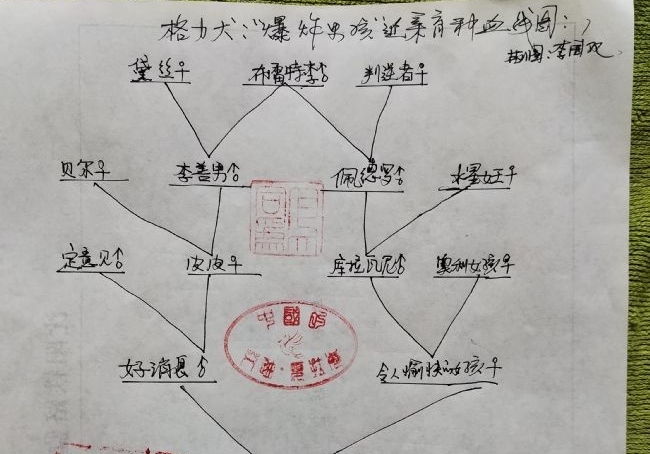 格力犬:"爆炸男孩近亲育种血线图:
制图:李国
黛丝♀ 布雷特李♂ 判逆者♀
贝尔♀ 李善男♂ 佩德罗♂ 水星女王♀
定意见♂ 皮皮♀ 库拉瓦尼♂ 奥利女孩♀
好消息♂ 令人愉快女孩♀
中國